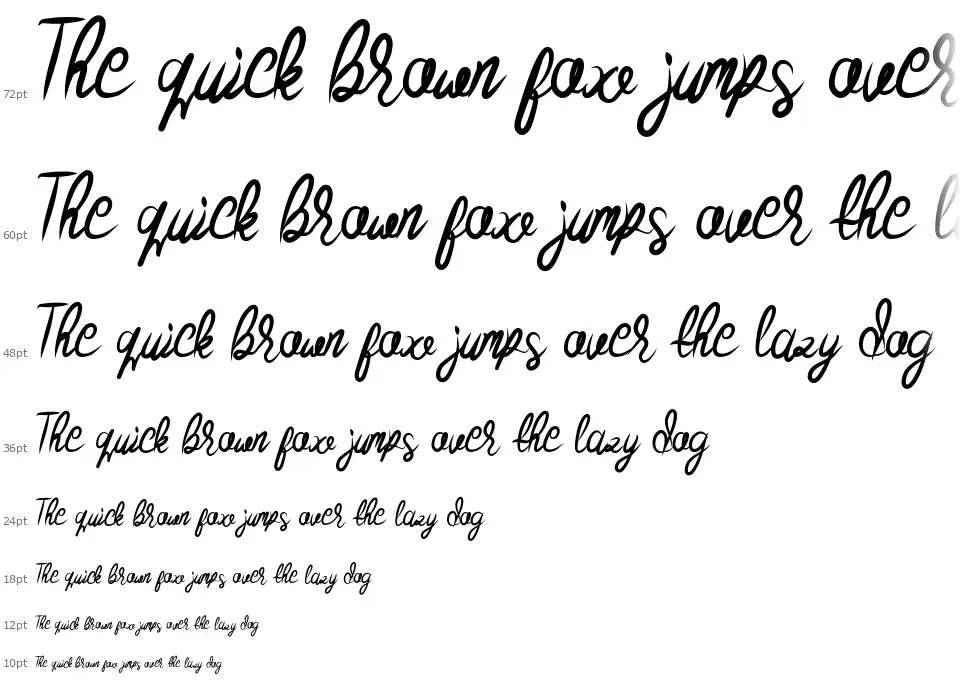 72pt The quick brown fox jumps over
60pt The quick brown fox jumps over the l
48pt The quick brown fox jumps over the lazy dog
36pt The quick brown fox jumps over the lazy dog
24pt The quick brown fox jumps over the lazy dog
18pt The quick brown fox jumps over the lazy dog
12pt The quick brown fox jumps over the lazy dog
10pt The quick brown fox jumps over the lazy dog